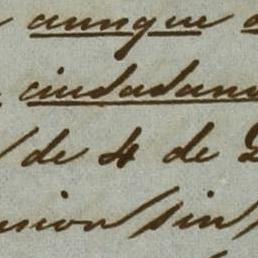 aunque
ciudadan
de 4 de
sion / sin